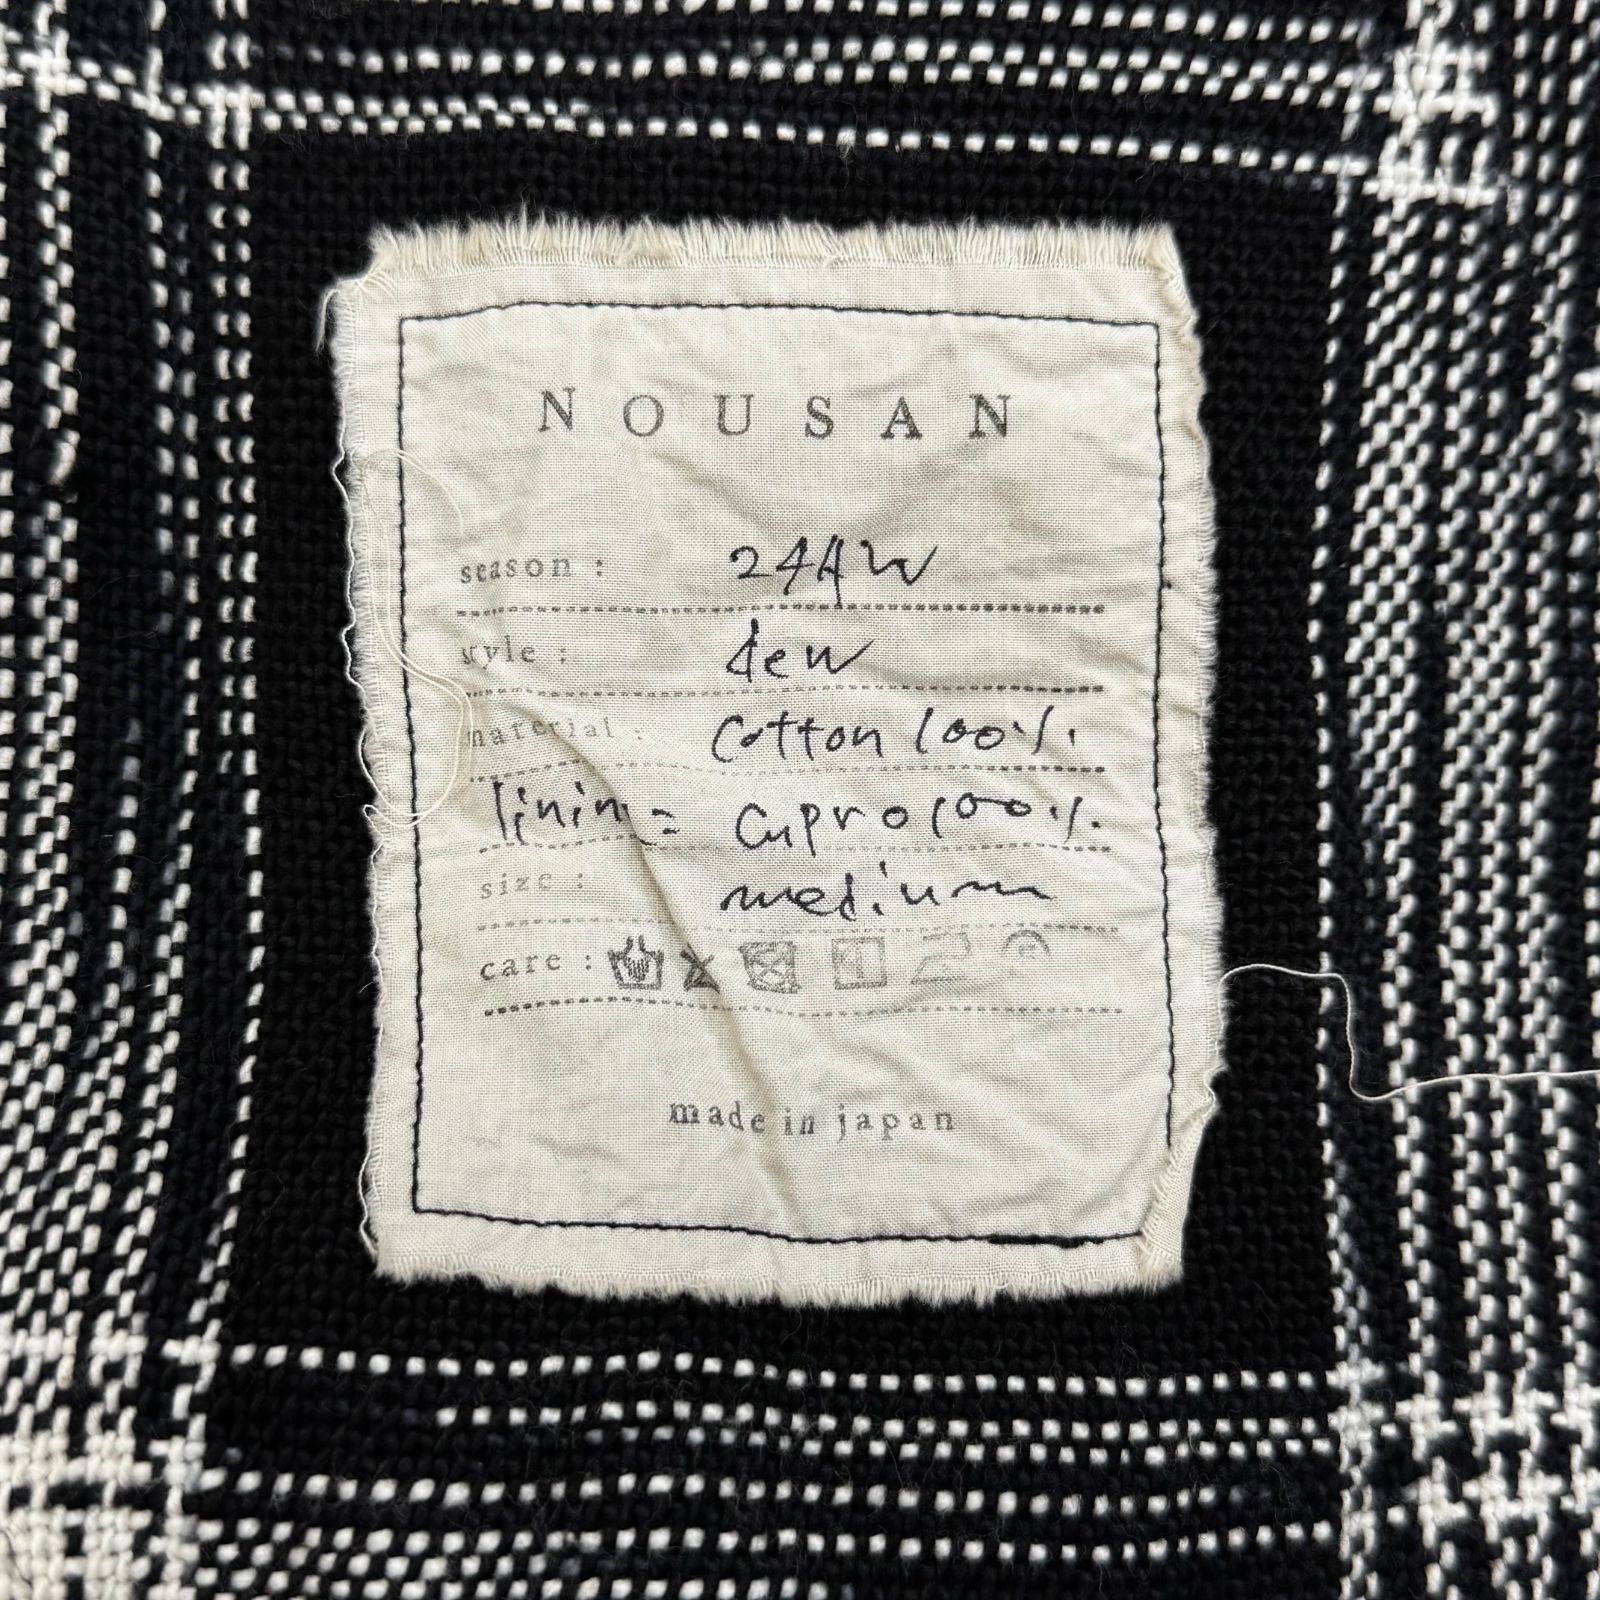 NOUSAN
season : 24AW
style : dew
material : cotton 100%.
lining = cupro 100%.
size : medium
care :
made in japan